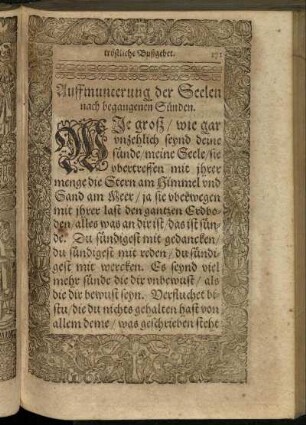 tröstliche Bußgebet. 271
Auffmunterung der Seelen
nach begangenen Sünden.
WIe groß / wie gar
vnzehlich seynd deine
sünde / meine Seele / sie
vbertreffen mit jhrer
menge die Stern am Himmel vnd
Sand am Meer / ja sie vberwegen
mit jhrer last den gantzen Erdbo-
den / alles was an dir ist / das ist sün-
de. Du sündigest mit gedancken /
du sündigest mit reden / du sündi-
gest mit wercken. Es seynd viel
mehr sünde die dir vnbewust / als
die dir bewust seyn. Verfluchet bi-
stu / die du nichts gehalten hast von
allem deme / was geschrieben steht